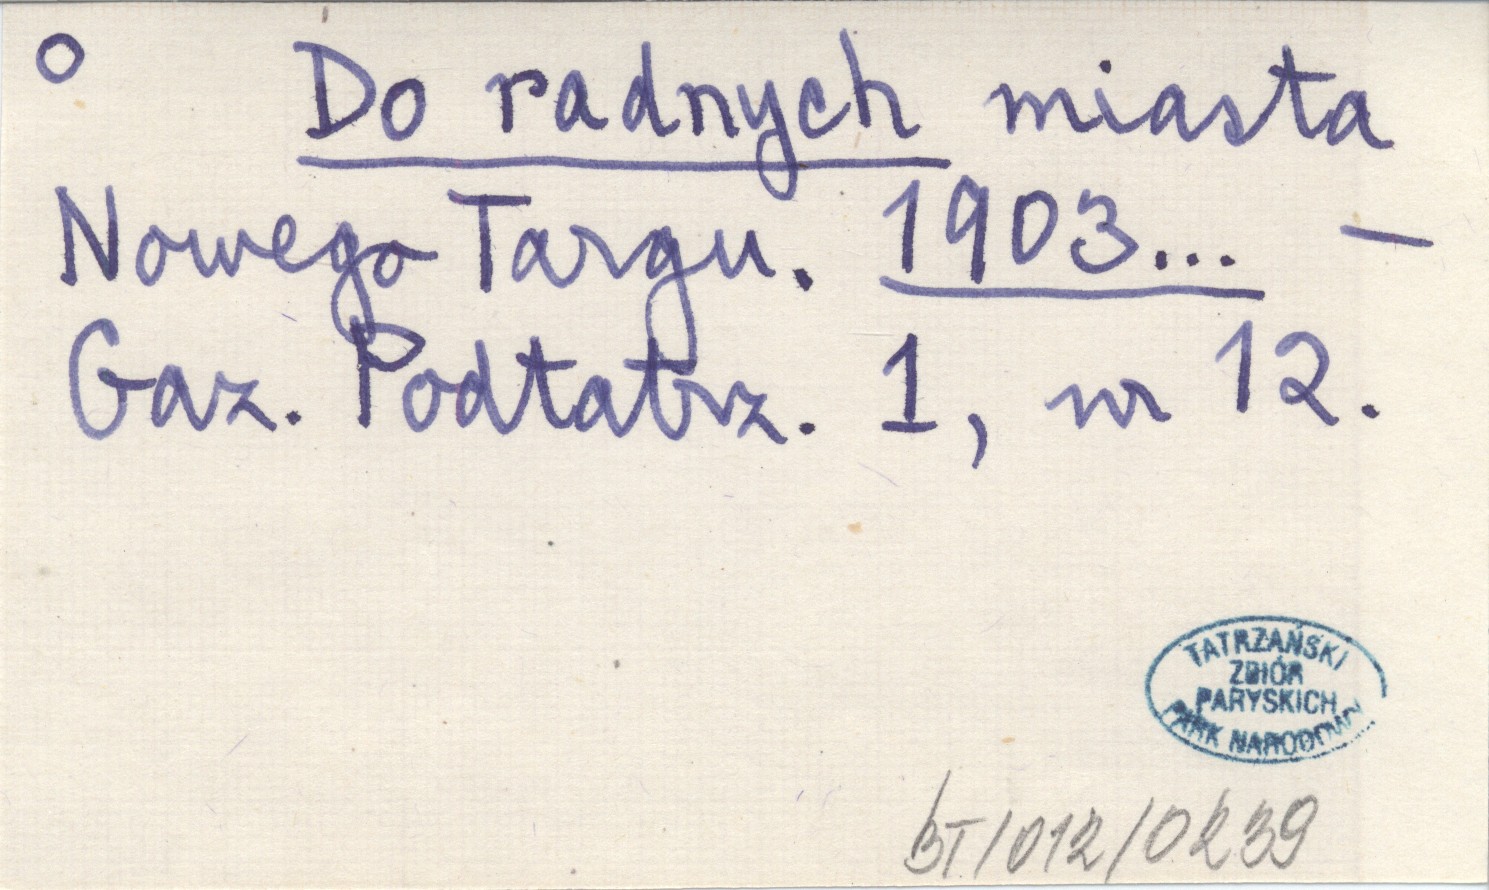 o Do radnych miasta
Nowego Targu. 1903... —
Gaz. Podtatrz. 1, nr 12.
TATRZAŃSKI
ZBIÓR
PARYSKICH
PARK NARODOWY
BT/012/0239